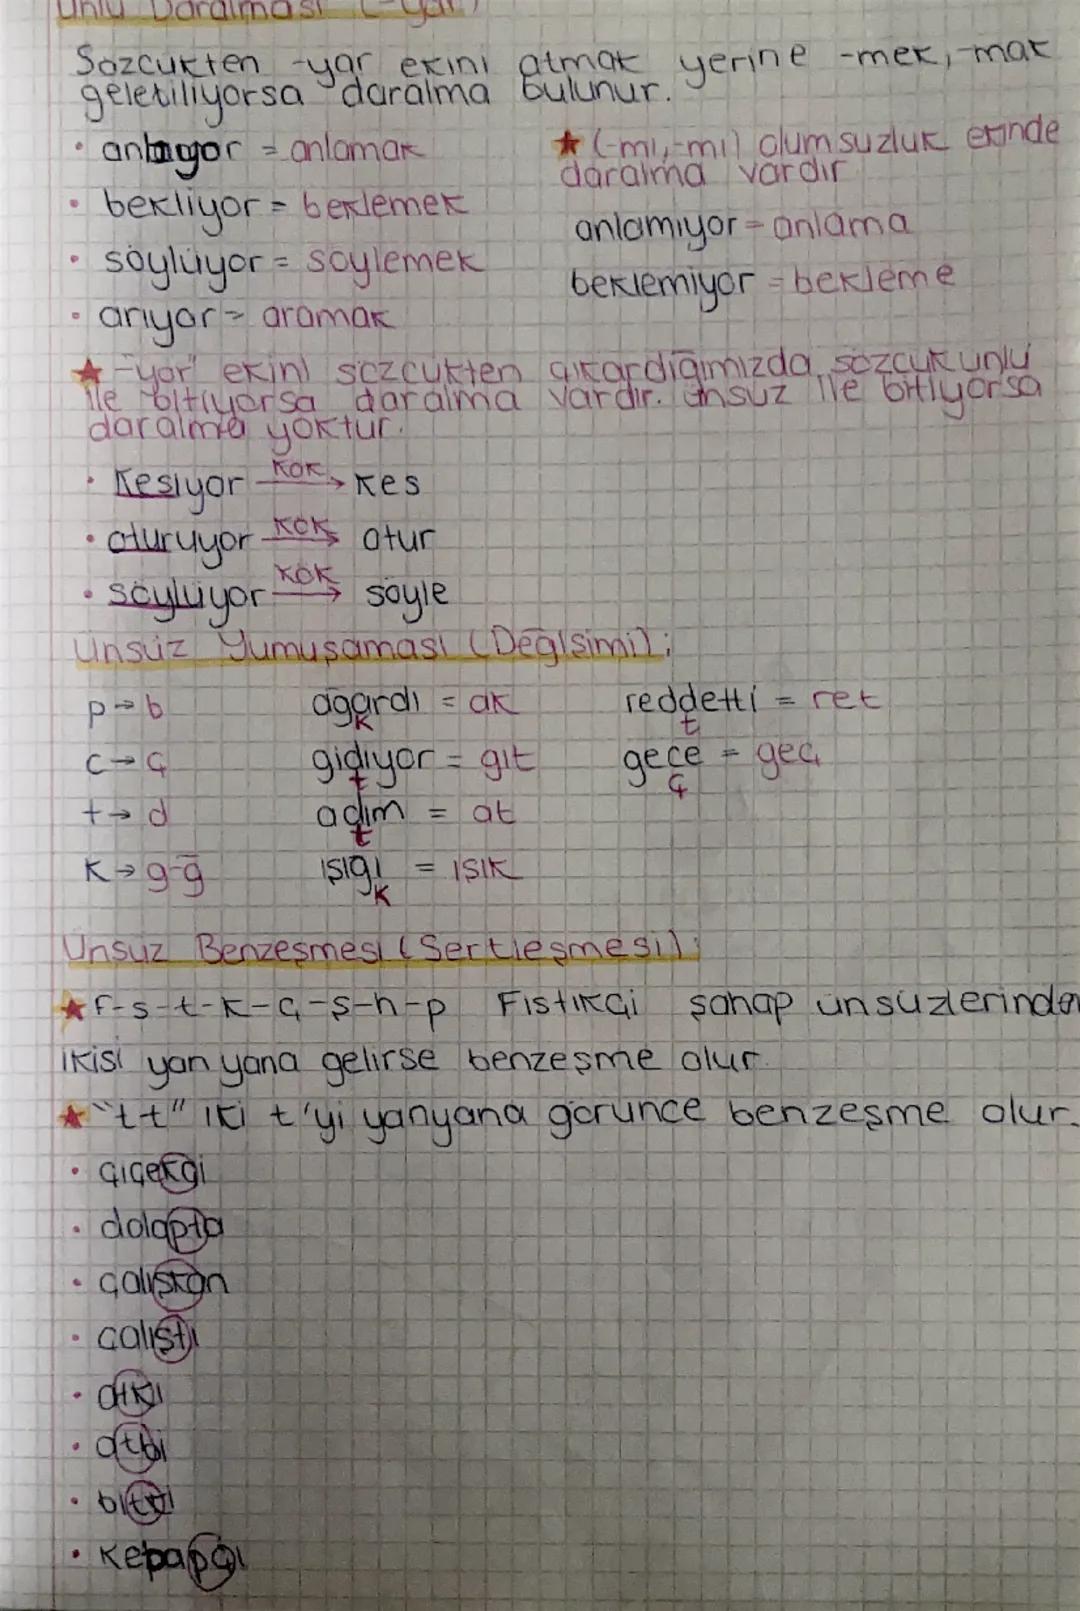 Ünlü Daralması (-yor)
Sözcükten -yor ekini atmak yerine -mek, -mak
getetiliyorsa daralma bulunur.
• anlıyor = anlamak
• bekliyor = beklemek
• söylüyor = söylemek
• arıyor = aramak
★ (-mı, -mi) olumsuzluk ekinde
daralma vardır
anlamıyor = anlama
beklemiyor = bekleme
★ -yor" ekini sözcükten çıkardığımızda sözcük ünlü
ile bitiyorsa daralma vardır. ünsüz ile bitiyorsa
daralma yoktur.
• Kesiyor kök → kes
• oturuyor kök → otur
• söylüyor kök → söyle
Ünsüz Yumuşaması (Değişimi);
p → b ağardı = ak reddetti = ret
k t
c → ç gidiyor = git gece = geç
t ç
t → d adım = at
t
k → g-ğ ışığı = ışık
k
Ünsüz Benzeşmesi (Sertleşmesi);
★ f-s-t-k-ç-ş-h-p Fıstıkçı şahap ünsüzlerinden
ikisi yan yana gelirse benzeşme olur.
★ "tt" iki t'yi yanyana görünce benzeşme olur.
• çiçekçi
• dolapta
• çalışkan
• çalıştı
• atkı
• bitki
• kebapçı